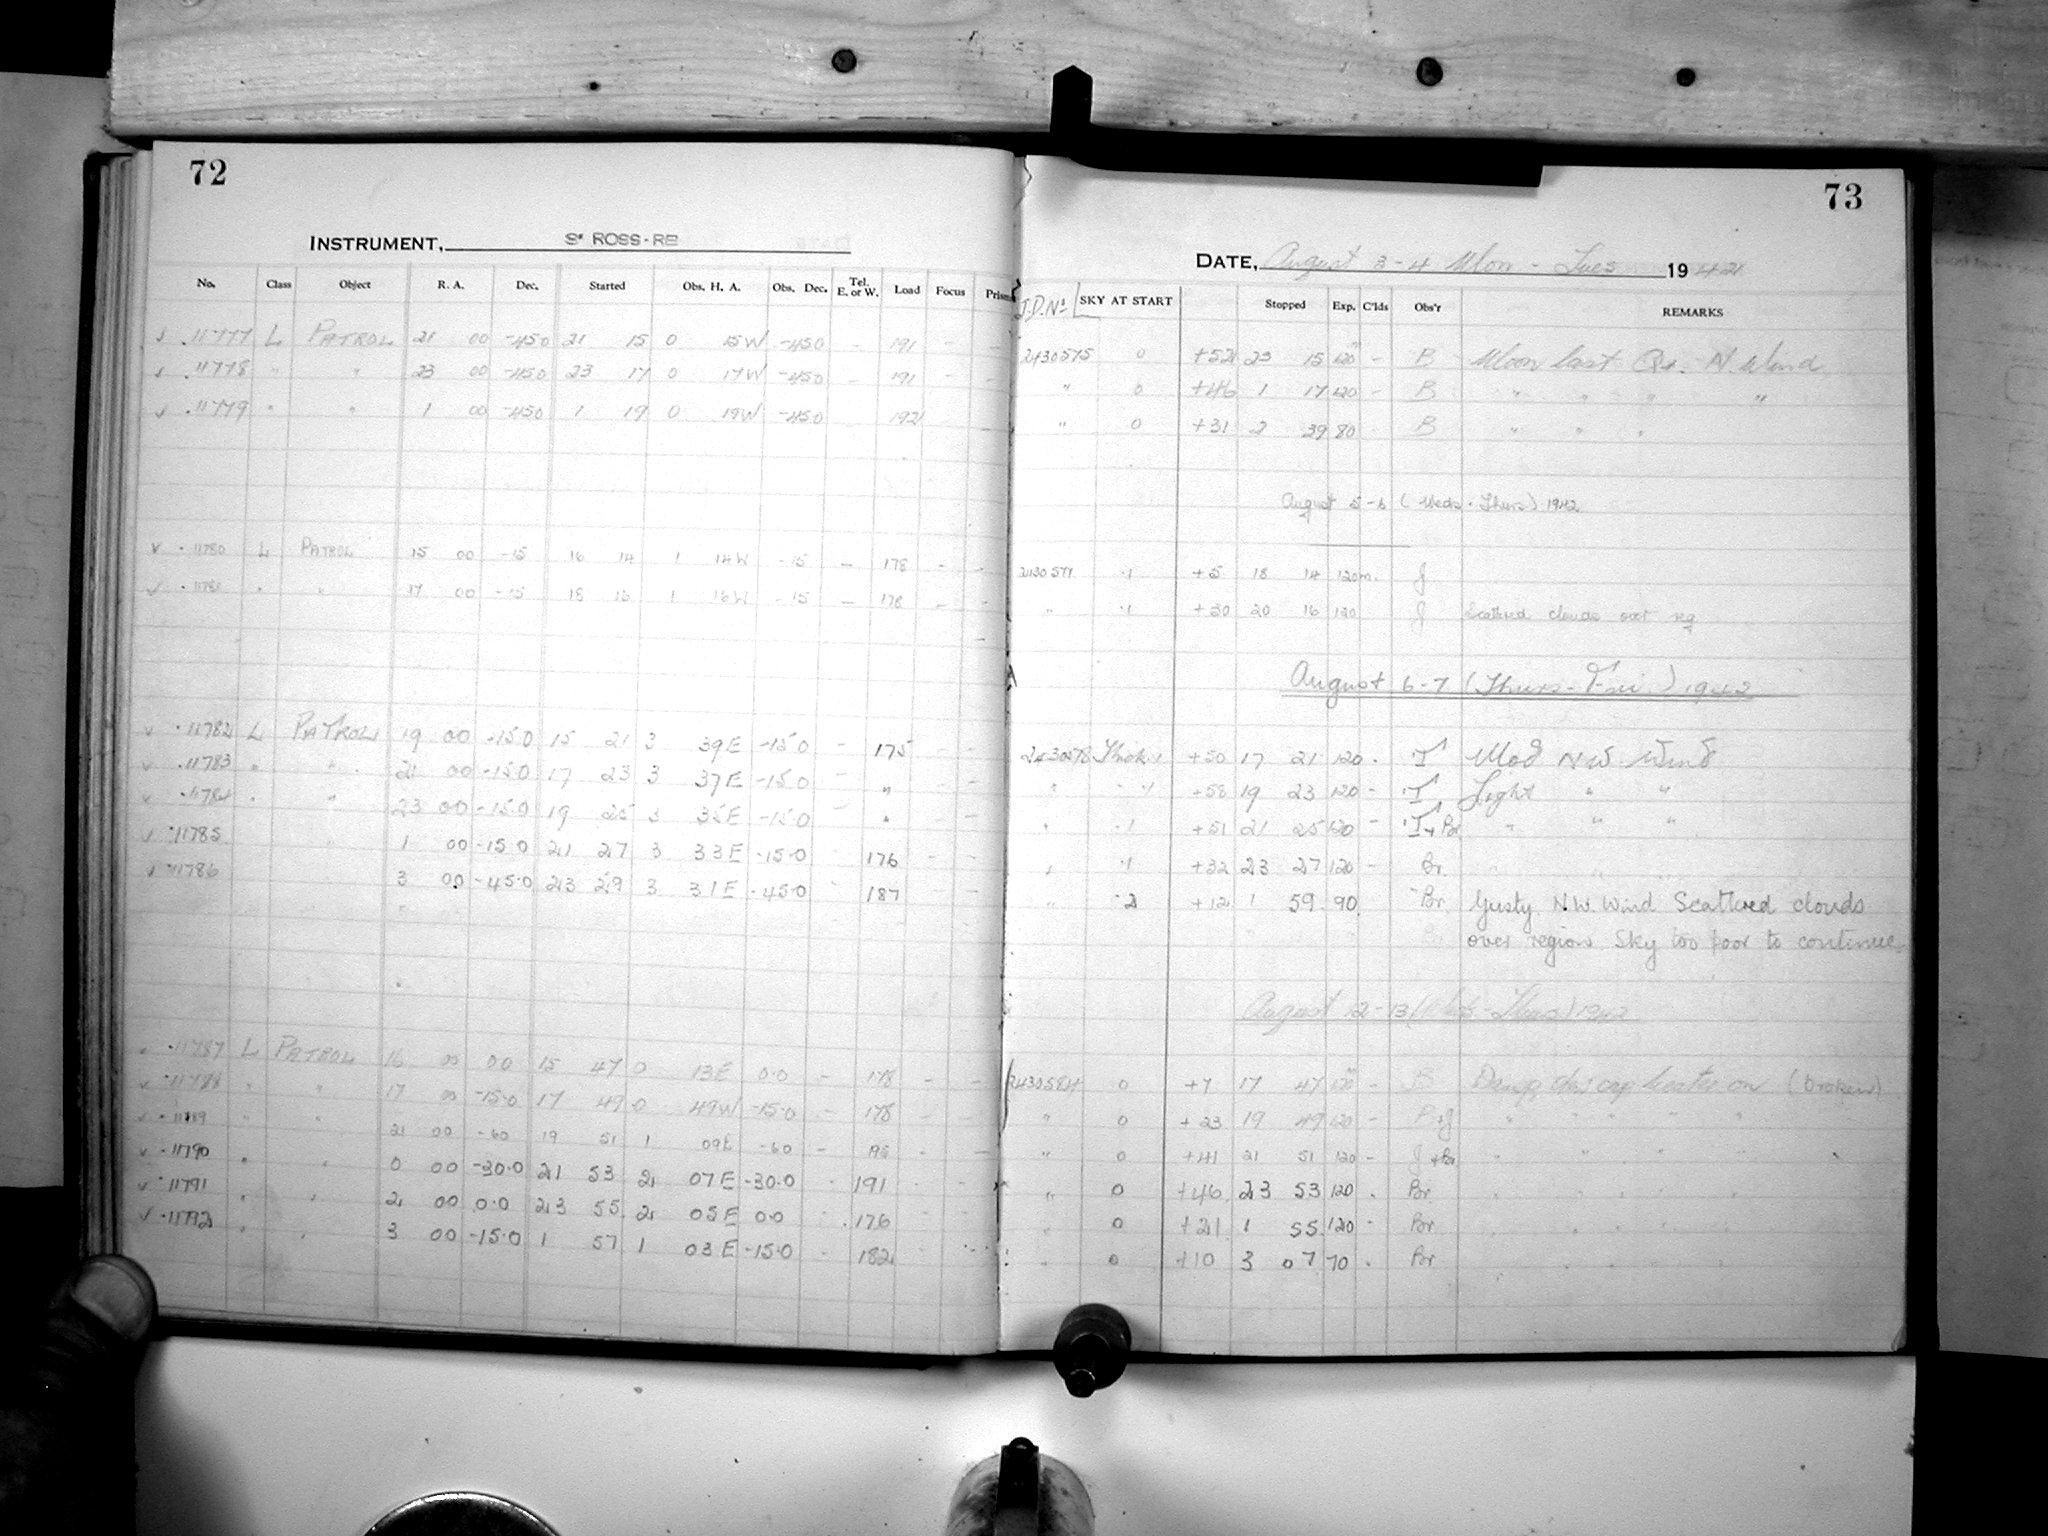 72
INSTRUMENT, ROSS-
No. Class Object R. A. Dec. Started Obs. H. A. Obs. Dec. Tel. E. or W. Load Focus Prism
.11777 L PATROL 21 00 -450 21 15 0 15W -450 - 191 -
.11778 " " 23 00 -450 23 17 0 17W -450 - 191 - -
.11779 " " 1 00 -450 1 19 0 19W -450 192 -
v .11780 L PATROL 15 00 -15 16 14 1 14W -15 - 178 - -
v .11781 " " 17 00 -15 18 16 1 16W -15 - 178 - -
v .11782 L PATROL 19 00 -15.0 15 21 3 39E -15.0 - 175 - -
v .11783 " " 21 00 -15.0 17 23 3 37E -15.0 - " - -
v .11784 " " 23 00 -15.0 19 25 3 35E -15.0 - " - -
v .11785 1 00 -15.0 21 27 3 33E -15.0 - 176 - -
v .11786 3 00 -45.0 23 29 3 31E -45.0 - 187 - -
.11787 L PATROL 16 00 00 15 47 0 13E 0.0 - 178 - -
v .11788 " " 17 00 -15.0 17 49 0 49W -15.0 - 178 - -
v .11789 " " 21 00 -60 19 51 1 09E -60 - 195 - -
v .11790 " " 0 00 -30.0 21 53 2 07E -30.0 - 191 - -
v .11791 " " 2 00 0.0 23 55 2 05E 0.0 - 176 - -
v .11792 " " 3 00 -15.0 1 57 1 03E -15.0 - 182 -
73
DATE, August 3-4 Mon - Tues 1942
J.D. No SKY AT START Stopped Exp. C'lds Obs'r REMARKS
2430575 0 +52 23 15 120m - B Moon Last Qr. - N. Wind
" 0 +46 1 17 120 - B " " " "
" 0 +31 2 39 80 - B " " "
August 5-6 (Weds - Thurs) 1942
2430577 .1 +5 18 14 120m. J
" .1 +30 20 16 120 J Scattered clouds over reg
August 6-7 (Thurs - Fri.) 1942
2430578 Thick .1 +50 17 21 120 . T Mod N.W. Wind
" .1 +58 19 23 120 - T Light " "
" .1 +51 21 25 120 - T + Br " " "
" .1 +32 23 27 120 - Br.
" .2 +12 1 59 90 Br. Gusty N.W. Wind Scattered clouds
over region Sky too poor to continue.
August 12-13 (Wed - Thurs) 1942
2430584 0 +7 17 47 120m - B Damp, dew cap heater on (broken)
" 0 +23 19 49 120 - B+J " " " "
" 0 +41 21 51 120 - J+Br " " " "
" 0 +46 23 53 120 . Br. " " " "
" 0 +21 1 55 120 - Br. " " " "
" 0 +10 3 07 70 . Br " " " "